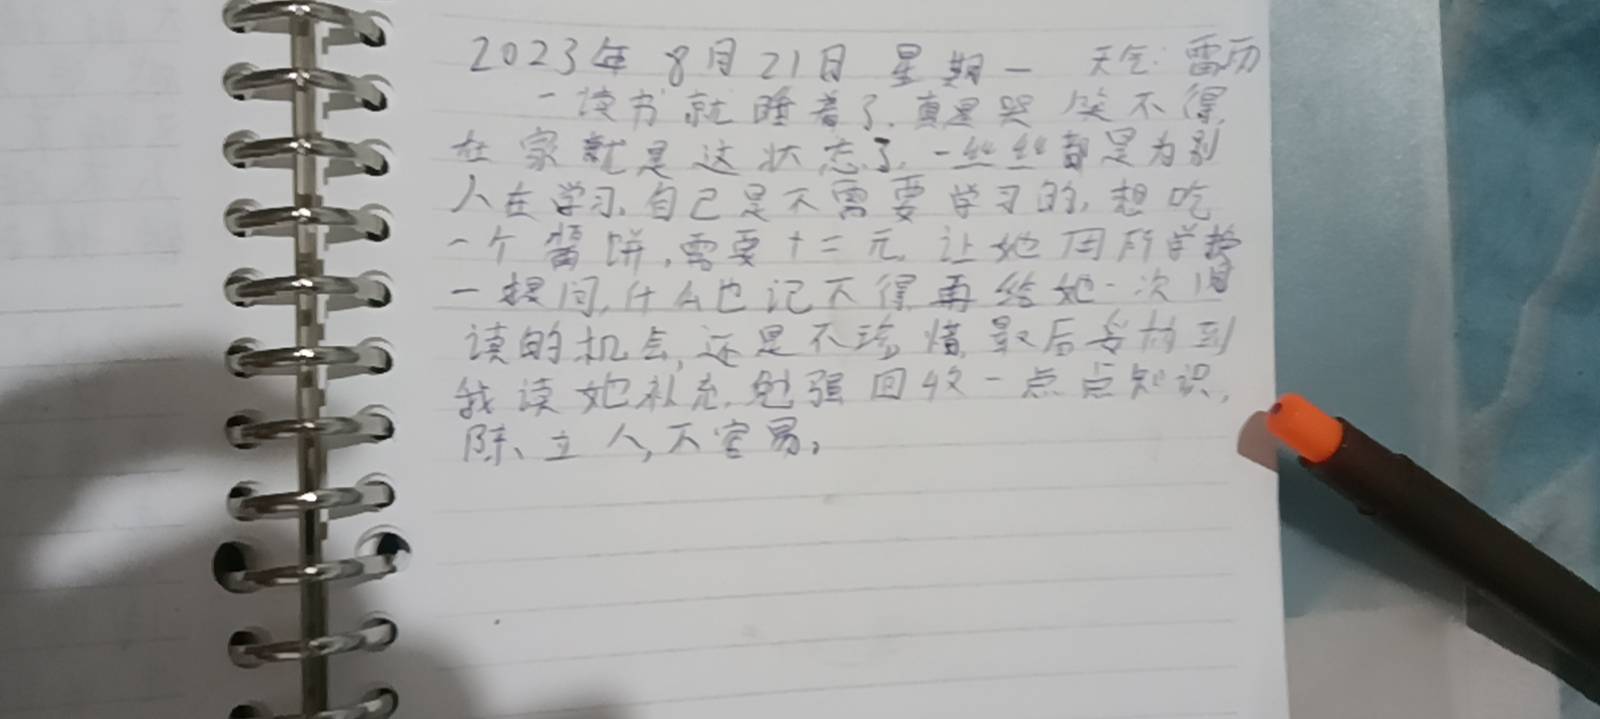 2023年 8月21日 星期一 天气:雷历
一读书就睡着了.真是哭笑不得,
在家就是这状态了.一丝丝都是为别
人在学习,自己是不需要学习的,想吃
一个酱饼,需要十二元,让她用所学换
一提问,什么也记不得再给她一次
读的机会,还是不珍惜,最后 到
我读她补充,勉强回收一点点知识,
陈、立人,不容易,